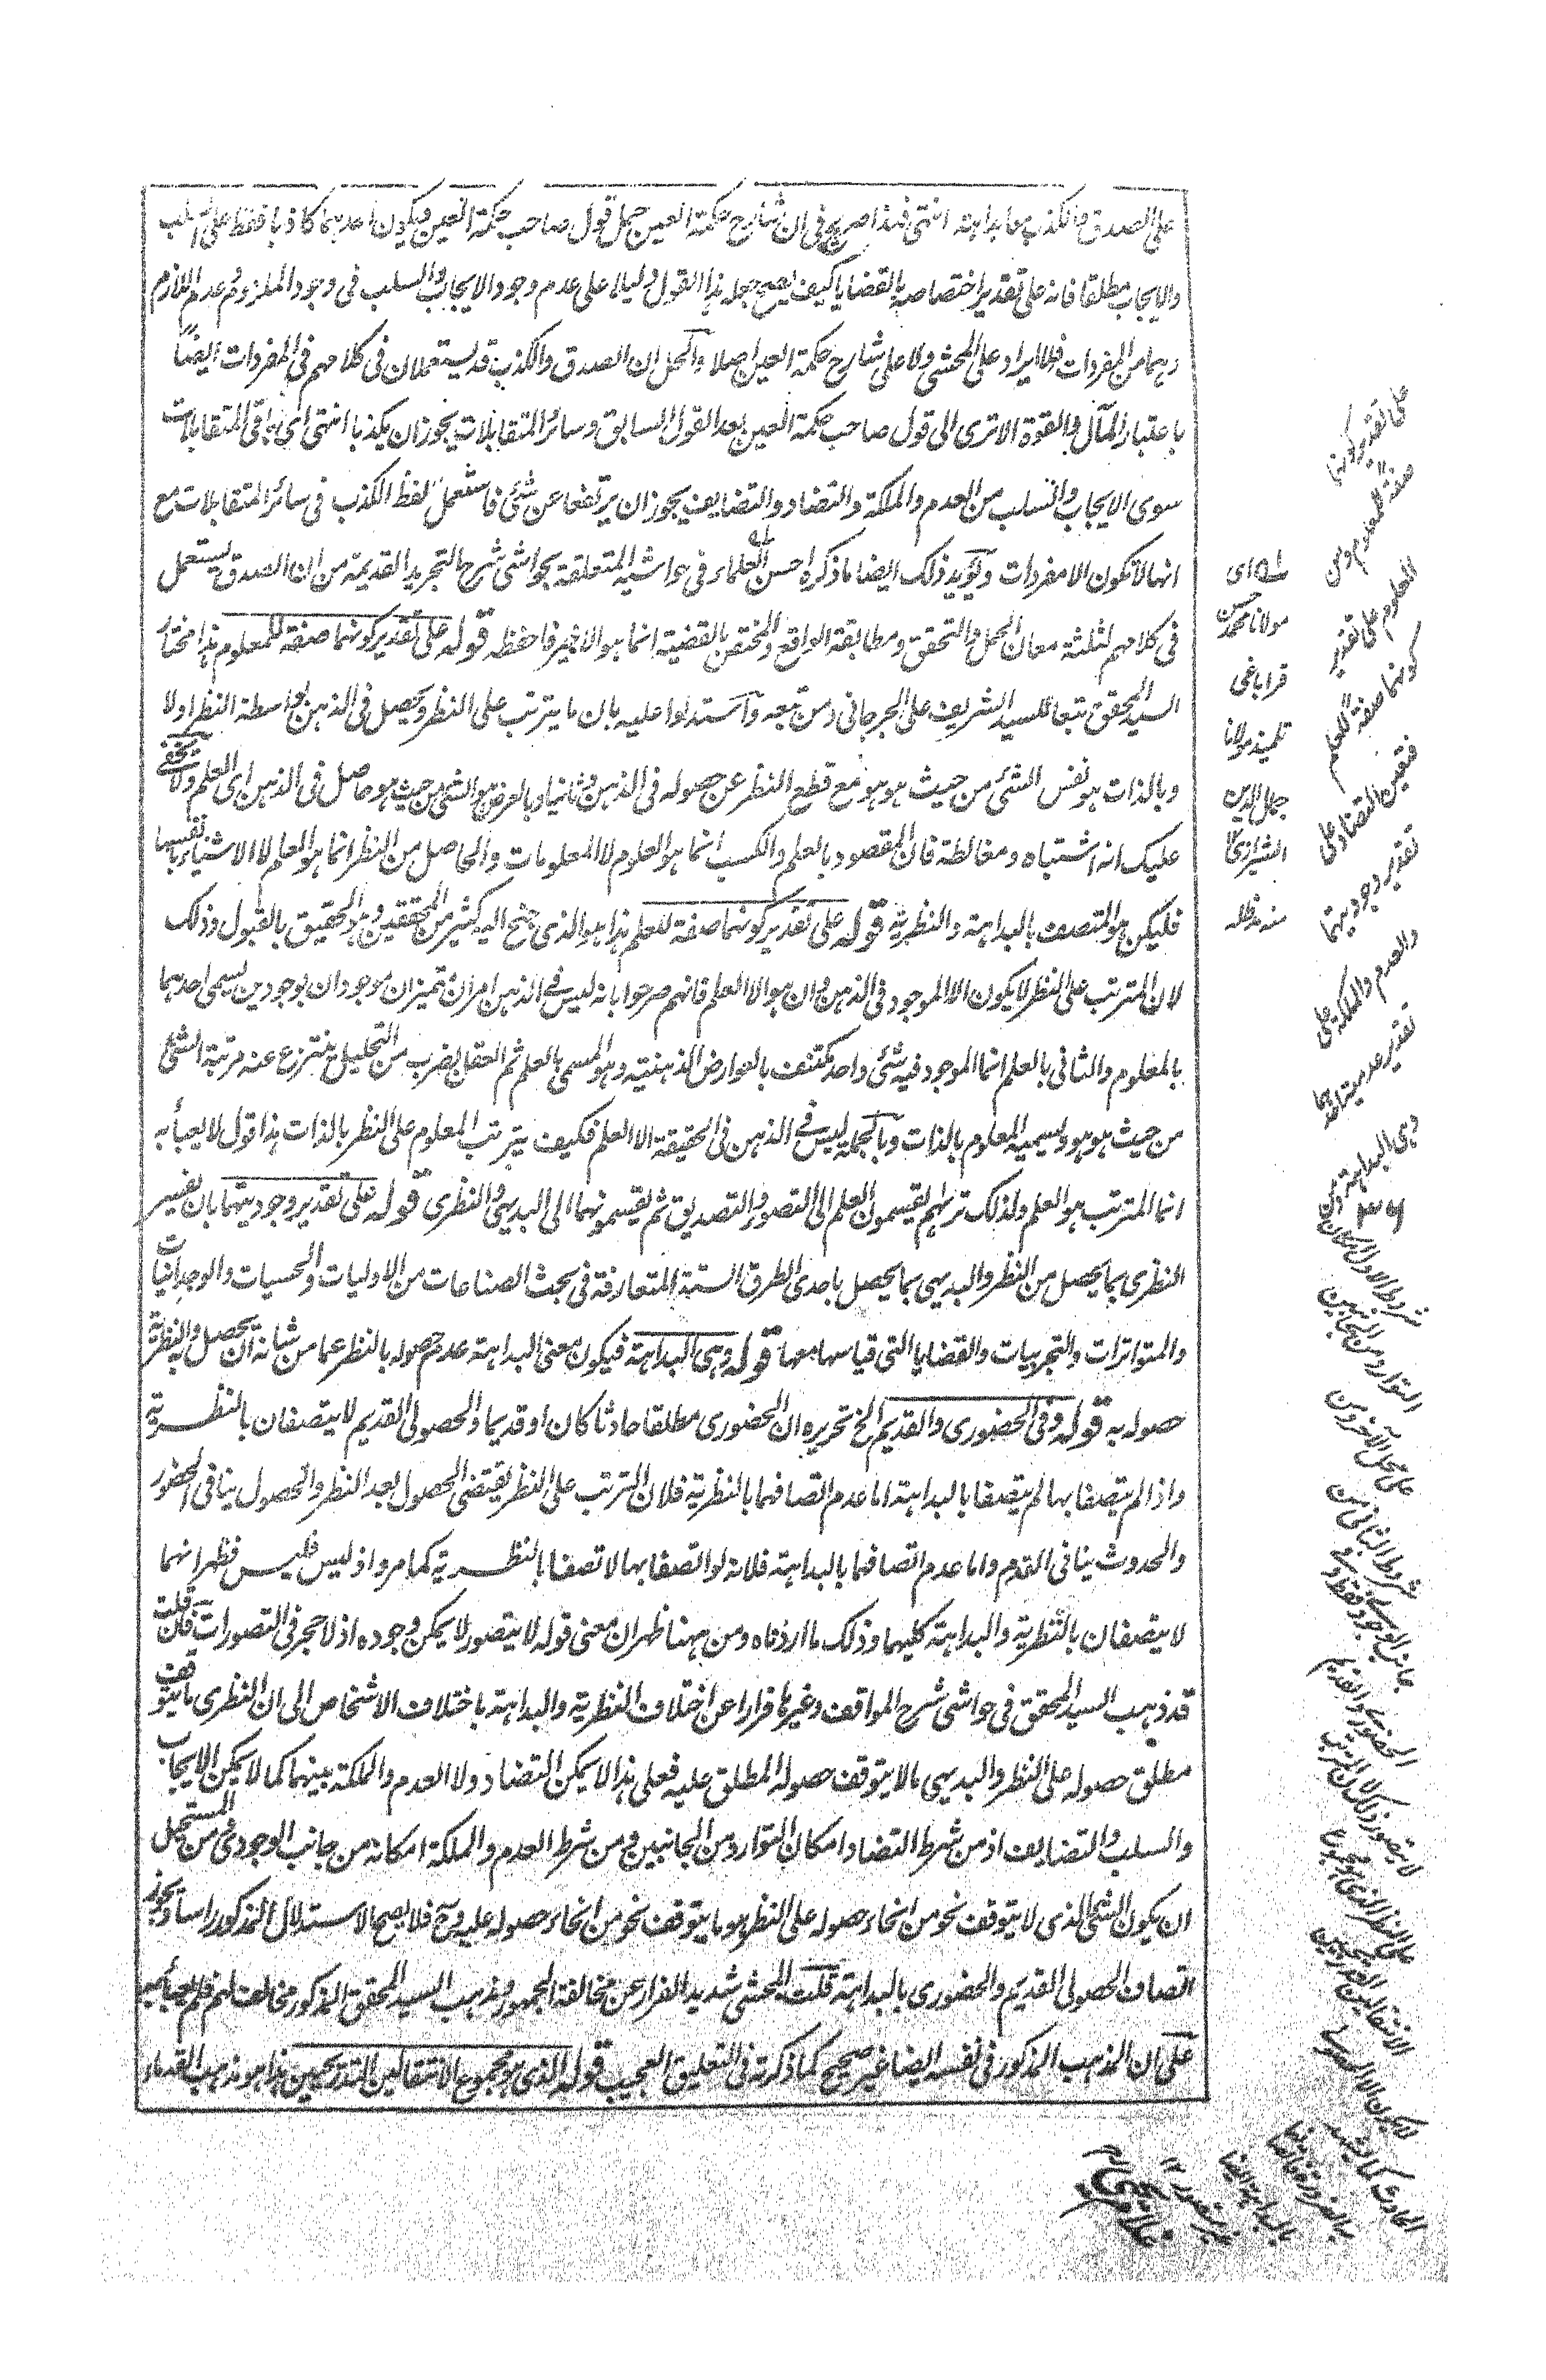 على الصدق والكذب معا بداهة انتهى فهذا صريح فى ان شارح حكمة العين حمل قول صاحب حكمة العين فيكون احدهما كاذبا فقط على السلب
والايجاب مطلقا فانه على تقدير اختصاصه بالقضايا كيف يصح جعله هذا القول دليلا على عدم وجود الايجاب والسلب فى وجود الملزوم وعدم اللازم
وهما من المفردات فلا ايراد على المحشى ولا على شارح حكمة العين اصلا والحل ان الصدق والكذب قد يستعملان فى كلامهم فى المفردات ايضا
باعتبار المآل والقوة الا ترى الى قول صاحب حكمة العين بعد القول السابق وسائر المتقابلات يجوز ان يكذبا انتهى اى باقى المتقابلات
سوى الايجاب والسلب من العدم والملكة والتضاد والتضايف يجوز ان يرتفعا عن شئ فاستعمل لفظ الكذب فى سائر المتقابلات مع
انها لا تكون الا مفردات ويؤيد ذلك ايضا ما ذكره احسن العلماء فى حواشيه المتعلقة بحواشى شرح التجريد القديمة من ان الصدق يستعمل
فى كلامهم لثلثة معان الحمل والتحقق ومطابقة الواقع والمختص بالقضية انما هو الاخير فاحفظه قوله على تقدير كونهما صفة للمعلوم هذا مختار
السيد المحقق تبعا للسيد الشريف على الجرجانى ومن تبعه واستدلوا عليه بان ما يترتب على النظر ويحصل فى الذهن بواسطة النظر اولا
وبالذات هو نفس الشئ من حيث هو هو مع قطع النظر عن حصوله فى الذهن وثانيا وبالعرض هو الشئ من حيث هو حاصل فى الذهن اى العلم ولا يخفى
عليك انه اشتباه ومغالطة فان المقصود بالعلم والكسب انما هو العلوم لا المعلومات والحاصل من النظر انما هو العلم لا الاشياء بانفسها
فليكن هو المتصف بالبداهة والنظرية قوله على تقدير كونهما صفة للعلم هذا هو الذى جنح اليه كثير من المحققين وهو الحقيق بالقبول وذلك
لان المترتب على النظر لا يكون الا الموجود فى الذهن وان هو الا العلم فانهم صرحوا بانه ليس فى الذهن امران متميزان موجودان بوجودين يسمى احدهما
بالمعلوم والثانى بالعلم انما الموجود فيه شئ واحد مكتنف بالعوارض الذهنية وهو المسمى بالعلم ثم العقل بضرب من التحليل ينتزع عنه مرتبة الشئ
من حيث هو هو ويسميه المعلوم بالذات وبالجملة ليس فى الذهن فى الحقيقة الا العلم فكيف يترتب المعلوم على النظر بالذات هذا قول لا يعبأ به
انما المترتب هو العلم ولذلك تراهم يقسمون العلم الى التصور والتصديق ثم يقسمونهما الى البديهى والنظرى قوله على تقدير وجوديتهما بان تفسير
النظرى بما يحصل من النظر والبديهى بما يحصل باحدى الطرق الستة المتعارفة فى بحث الصناعات من الاوليات والحسيات والوجدانيات
والمتواترات والتجربيات والقضايا التى قياسها معها قوله وهى البداهة فيكون معنى البداهة عدم حصوله بالنظر عما من شانه ان يحصل به والنظرية
حصوله به قوله وفى الحضورى والقديم الخ تحريره ان الحضورى مطلقا حادثا كان او قديما والحصولى القديم لا يتصفان بالنظرية
واذا لم يتصفا بها لم يتصفا بالبداهة اما عدم اتصافهما بالنظرية فلان الترتب على النظر يقتضى الحصول بعد النظر والحصول ينافى الحضور
والحدوث ينافى القدم واما عدم اتصافهما بالبداهة فلانه لو اتصفا بها لاتصفا بالنظرية كما مر واذ ليس فليس فظهر انهما
لا يتصفان بالنظرية والبداهة كليهما وذلك ما اردناه ومن ههنا ظهر ان معنى قوله لا يتصور لا يمكن وجوده اذ لا حجر فى التصورات فان قلت
قد ذهب السيد المحقق فى حواشى شرح المواقف وغيرها فرارا عن اختلاف النظرية والبداهة باختلاف الاشخاص الى ان النظرى ما يتوقف
مطلق حصوله على النظر والبديهى ما لا يتوقف حصوله المطلق عليه فعلى هذا لا يمكن التضاد ولا العدم والملكة بينهما كما لا يمكن الايجاب
والسلب والتضايف اذ من شرط التضاد امكان التوارد من الجانبين ومن شرط العدم والملكة امكانه من جانب الوجودى ومن المستحيل
ان يكون الشئ الذى لا يتوقف نحو من انحاء حصوله على النظر هو ما يتوقف نحو من انحاء حصوله عليه وح فلا يصح الاستدلال المذكور راسا ويجوز
اتصاف الحصولى القديم والحضورى بالبداهة قلت المحشى شديد الفرار عن مخالفة الجمهور ومذهب السيد المحقق المذكور مخالف لهم فلم يعبأ به
على ان المذهب المذكور فى نفسه ايضا غير صحيح كما ذكرته فى التعليق العجيب قوله الذى هو مجموع الانتقالين التدريجيين هذا هو مذهب القدماء
اى
مولانا محمد حسين
قراباغى
تلميذ مولانا
جمال الدين
الشيرازى
منه مد ظله
على تقدير كونهما
صفة للمعلوم ومن
المعلوم على تقدير
كونهما صفة للعلم
فتعين التضاد على
تقدير وجوديتهما
والعدم والملكة على
تقدير عدمية احدهما
وهى البداهة ومن
شروط الاول امكان
التوارد من الجانبين
على محل الآخر ومن
شرط الثانى من
جانب الوجودى فقط وفى
الحضورى والقديم
لا يتصور ذلك لان الترتب
على النظر الذى هو مجموع
الانتقالين التدريجيين
لا يكون الا الحصولى
الحادث كما